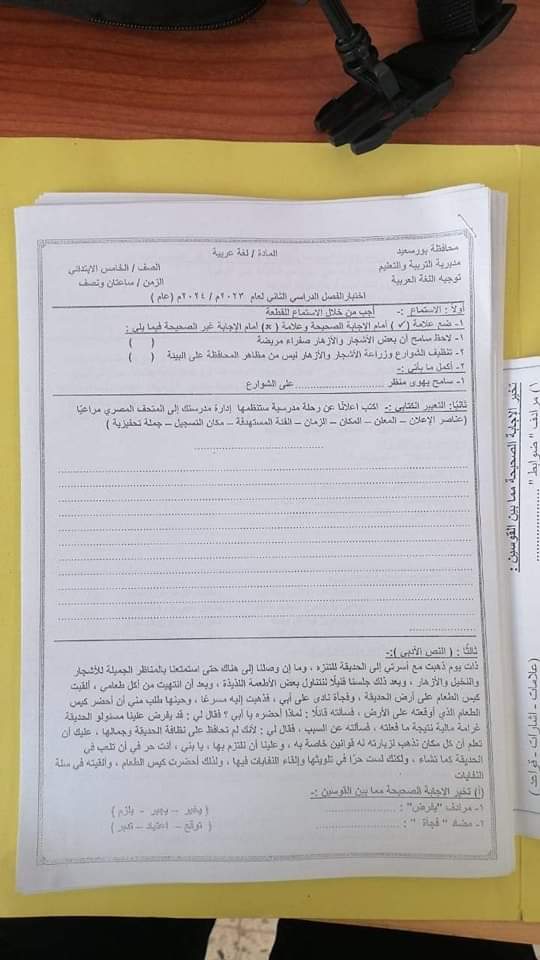 محافظة بورسعيد
المادة / لغة عربية
مديرية التربية والتعليم
الصف / الخامس الابتدائي
توجيه اللغة العربية
الزمن / ساعتان ونصف
اختبار الفصل الدراسي الثاني لعام ٢٠٢٣م / ٢٠٢٤م ( عام )
أولاً : الاستماع :- أجب من خلال الاستماع للقطعة
١- ضع علامة ( ✓ ) أمام الإجابة الصحيحة وعلامة ( × ) أمام الإجابة غير الصحيحة فيما يلي :
١- لاحظ سامح أن بعض الأشجار والأزهار صفراء مريضة ( )
٢- تنظيف الشوارع وزراعة الأشجار والأزهار ليس من مظاهر المحافظة على البيئة ( )
٢- أكمل ما يأتي :-
١- سامح يهوى منظر ........................ على الشوارع
ثانيًا: التعبير الكتابي :- اكتب اعلانًا عن رحلة مدرسية ستنظمها إدارة مدرستك إلى المتحف المصري مراعيًا
(عناصر الإعلان – المعلن – المكان – الزمان – الفئة المستهدفة – مكان التسجيل – جملة تحفيزية )
ثالثًا : ( النص الأدبي ):-
ذات يوم ذهبت مع أسرتي إلى الحديقة للتنزه ، وما إن وصلنا إلى هناك حتى استمتعنا بالمناظر الجميلة للأشجار
والنخيل والأزهار ، وبعد ذلك جلسنا قليلًا لنتناول بعض الأطعمة اللذيذة ، وبعد أن انتهيت من أكل طعامي ، ألقيت
كيس الطعام على أرض الحديقة ، وفجأة نادى على أبي ، فذهبت إليه مسرعًا ، وحينها طلب مني أن أحضر كيس
الطعام الذي أوقعته على الأرض ، فسألته قائلًا : لماذا أحضره يا أبي ؟ فقال لي : قد يفرض علينا مسئولو الحديقة
غرامة مالية نتيجة ما فعلته ، فسألته عن السبب ، فقال لي : لأنك لم تحافظ على نظافة الحديقة وجمالها ، عليك أن
تعلم أن كل مكان تذهب لزيارته له قوانين خاصة به ، وعلينا أن نلتزم بها ، يا بني ، أنت حر في أن تلعب في
الحديقة كما تشاء ، ولكنك لست حرًا في تلويثها وإلقاء النفايات فيها ، ولذلك أحضرت كيس الطعام ، وألقيته في سلة
النفايات
(أ) تخير الاجابة الصحيحة مما بين القوسين :-
١- مرادف "يفرض" : .................... – يجبر – يلزم )
١- مضاد " فجأة " : .................... ( توقع – اعتياد – تدبر )
) مرادف " ضوابط " ....................... (علامات - اشارات - قواعد )
تخير الاجابة الصحيحة مما بين القوسين :